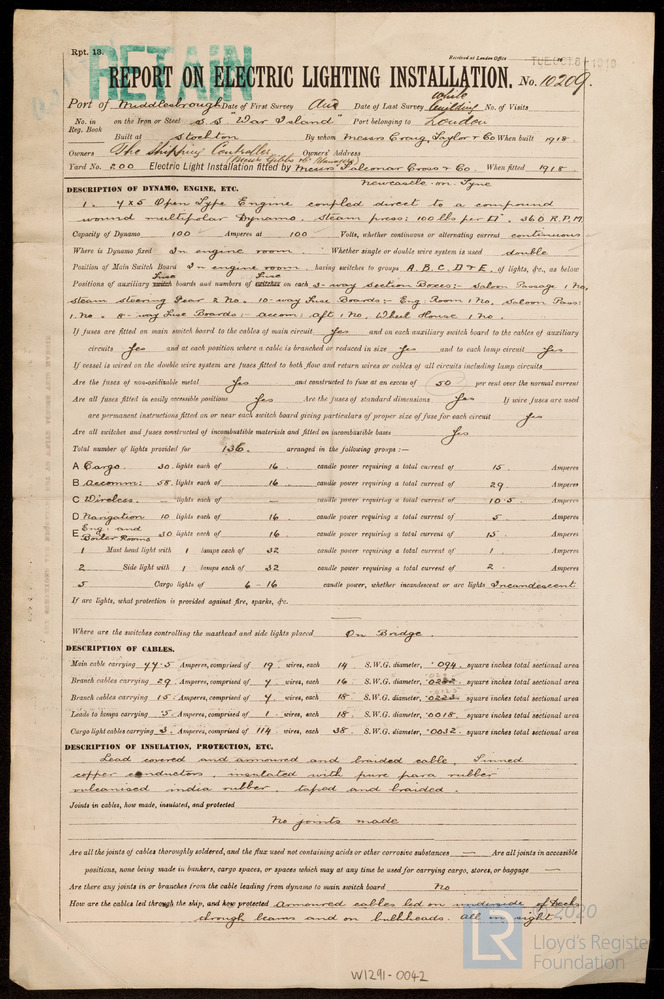 Rpt. 13.
RETAIN
Received at London Office
TUE OCT. 8 - 1918
REPORT ON ELECTRIC LIGHTING INSTALLATION. No. 10209.
Port of Middlesbrough Date of First Survey Date of Last Survey while building No. of Visits
No. in Reg. Book on the Iron or Steel S.S. "War Island" Port belonging to London
Built at Stockton By whom Messrs Craig, Taylor & Co When built 1918
Owners The Shipping Controller Owners' Address
(Messrs Gibbs & Co Managers)
Yard No. 200 Electric Light Installation fitted by Messrs Falconar Cross & Co. When fitted 1918
Newcastle-on-Tyne
DESCRIPTION OF DYNAMO, ENGINE, ETC.
1. 7x5 Open Type Engine coupled direct to a compound
wound multipolar Dynamo. Steam press: 100 lbs per □". 360 R.P.M
Capacity of Dynamo 100 Amperes at 100 Volts, whether continuous or alternating current continuous
Where is Dynamo fixed In engine room Whether single or double wire system is used double
Position of Main Switch Board In engine room. having switches to groups A. B. C. D & E. of lights, &c., as below
Positions of auxiliary switch fuse boards and numbers of switches fuse on each 3-way Section Boxes:- Saloon Passage 1 No,
steam steering Gear 2 No. 10-way Fuse Boards:- Eng. Room 1 No, Saloon Pass:
1. No. 8-way Fuse Boards:- accom: aft 1 No, Wheel House 1 No.
If fuses are fitted on main switch board to the cables of main circuit Yes and on each auxiliary switch board to the cables of auxiliary
circuits Yes and at each position where a cable is branched or reduced in size Yes and to each lamp circuit Yes
If vessel is wired on the double wire system are fuses fitted to both flow and return wires or cables of all circuits including lamp circuits
Are the fuses of non-oxidizable metal Yes and constructed to fuse at an excess of 50 per cent over the normal current
Are all fuses fitted in easily accessible positions Yes Are the fuses of standard dimensions Yes If wire fuses are used
are permanent instructions fitted on or near each switch board giving particulars of proper size of fuse for each circuit Yes
Are all switches and fuses constructed of incombustible materials and fitted on incombustible bases Yes
Total number of lights provided for 136. arranged in the following groups :—
A Cargo. 30 lights each of 16 candle power requiring a total current of 15. Amperes
B Accomm: 58 lights each of 16 candle power requiring a total current of 29 Amperes
C Wireless. — lights each of — candle power requiring a total current of 10.5 Amperes
D Navigation 10 lights each of 16 candle power requiring a total current of 5 Amperes
E Eng: and Boiler Rooms 30 lights each of 16 candle power requiring a total current of 15 Amperes
1 Mast head light with 1 lamps each of 32 candle power requiring a total current of 1 Amperes
2 Side light with 1 lamps each of 32 candle power requiring a total current of 2 Amperes
5 Cargo lights of 6 - 16 candle power, whether incandescent or arc lights Incandescent
If arc lights, what protection is provided against fire, sparks, &c.
Where are the switches controlling the masthead and side lights placed On Bridge.
DESCRIPTION OF CABLES.
Main cable carrying 77.5 Amperes, comprised of 19 wires, each 14 S.W.G. diameter, .094 square inches total sectional area
Branch cables carrying 29 Amperes, comprised of 7 wires, each 16 S.W.G. diameter, square inches total sectional area
Branch cables carrying 15 Amperes, comprised of 7 wires, each 18 S.W.G. diameter, square inches total sectional area
Leads to lamps carrying .5 Amperes, comprised of 1 wires, each 18 S.W.G. diameter, .0018 square inches total sectional area
Cargo light cables carrying 3 Amperes, comprised of 114 wires, each 38 S.W.G. diameter, .0032 square inches total sectional area
DESCRIPTION OF INSULATION, PROTECTION, ETC.
Lead covered and armoured and braided cable. Tinned
copper conductors, insulated with pure para rubber
vulcanised india rubber, taped and braided.
Joints in cables, how made, insulated, and protected
No joints made
Are all the joints of cables thoroughly soldered, and the flux used not containing acids or other corrosive substances — Are all joints in accessible
positions, none being made in bunkers, cargo spaces, or spaces which may at any time be used for carrying cargo, stores, or baggage —
Are there any joints in or branches from the cable leading from dynamo to main switch board No
How are the cables led through the ship, and how protected Armoured cables led on underside of Decks
through beams and on bulkheads. All in sight.
© 2020
LR
Lloyd's Register
Foundation
W1291-0042